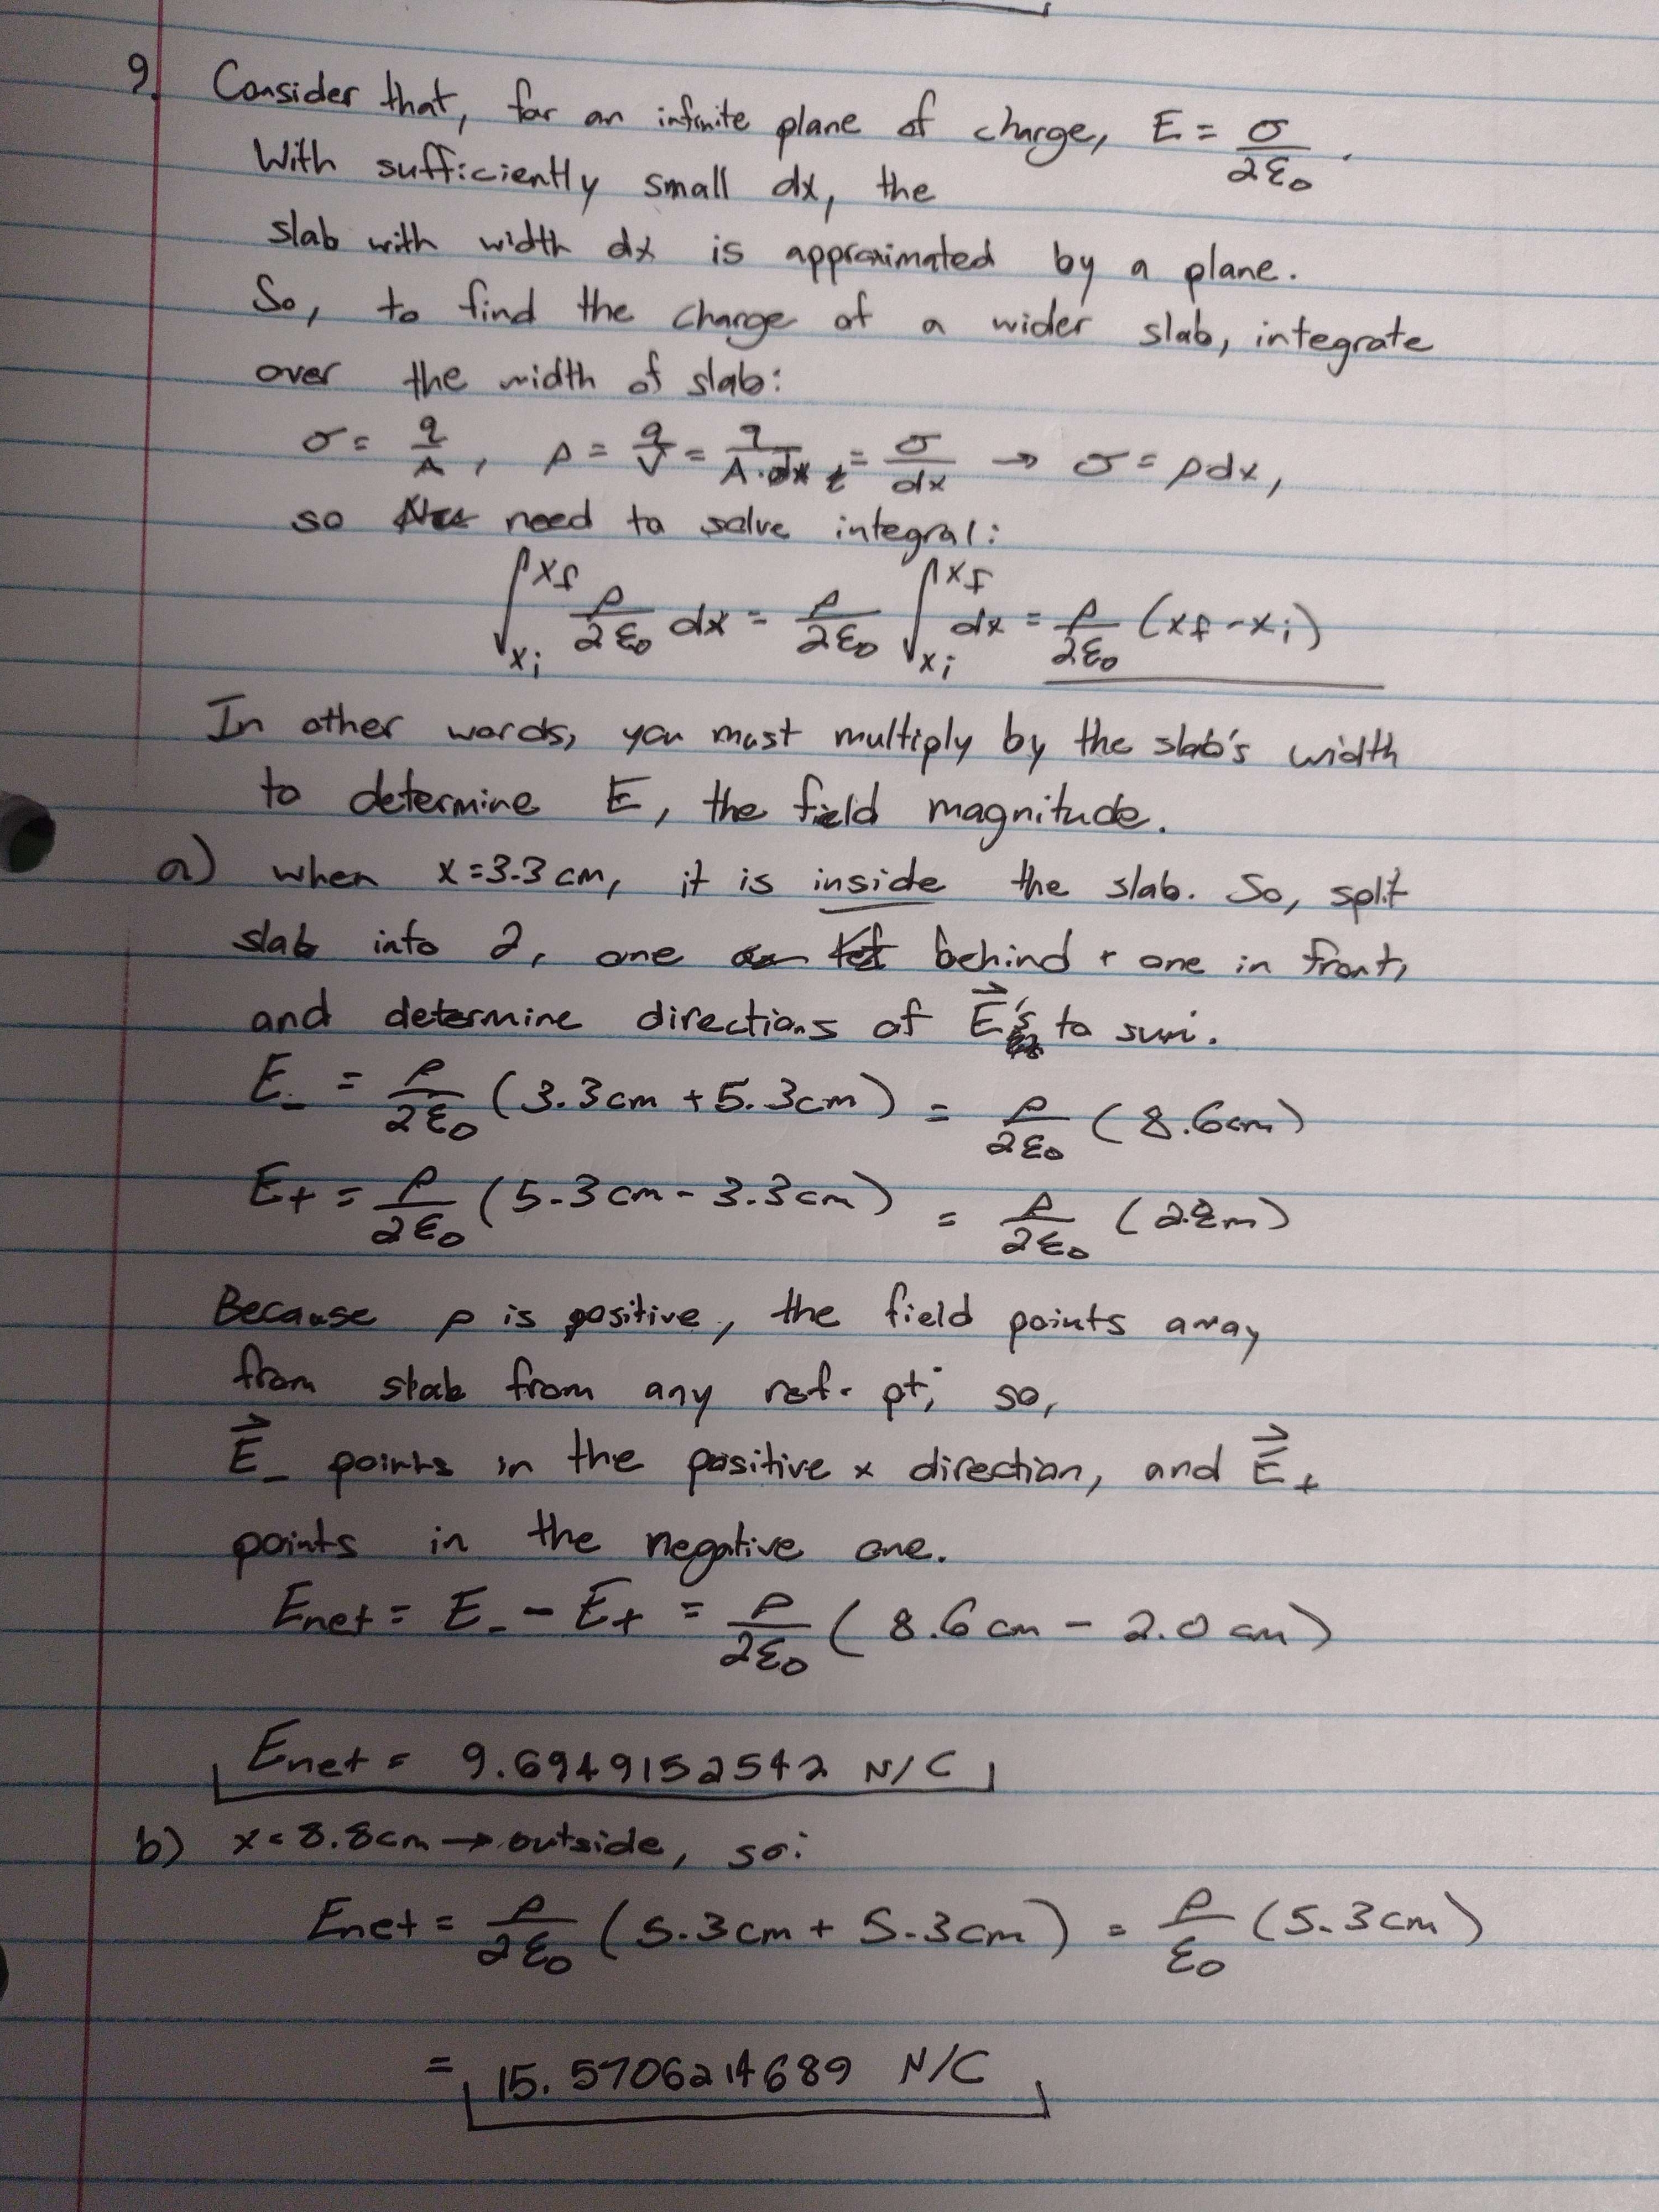 9. Consider that, for an infinite plane of charge, E = σ/2ε₀.
With sufficiently small dx, the
slab with width dx is approximated by a plane.
So, to find the charge of a wider slab, integrate
over the width of slab:
σ = q/A, ρ = q/V = q/A·dx = σ/dx → σ = ρdx,
so need to solve integral:
∫_xi^xf ρ/2ε₀ dx = ρ/2ε₀ ∫_xi^xf dx = ρ/2ε₀ (xf - xi)
In other words, you must multiply by the slab's width
to determine E, the field magnitude.
a) when x=3.3cm, it is inside the slab. So, split
slab into 2, one behind + one in front,
and determine directions of E⃗'s to sum.
E_- = ρ/2ε₀ (3.3cm + 5.3cm) = ρ/2ε₀ (8.6cm)
E+ = ρ/2ε₀ (5.3cm - 3.3cm) = ρ/2ε₀
Because ρ is positive, the field points away
from slab from any ref. pt; so,
E⃗_- points in the positive x direction, and E⃗+
points in the negative one.
Enet = E_- - E+ = ρ/2ε₀ (8.6cm - 2.0cm)
Enet = 9.6949152542 N/C
b) x=8.8cm → outside, so:
Enet = ρ/2ε₀ (5.3cm + 5.3cm) = ρ/ε₀ (5.3cm)
= 15.5706214689 N/C